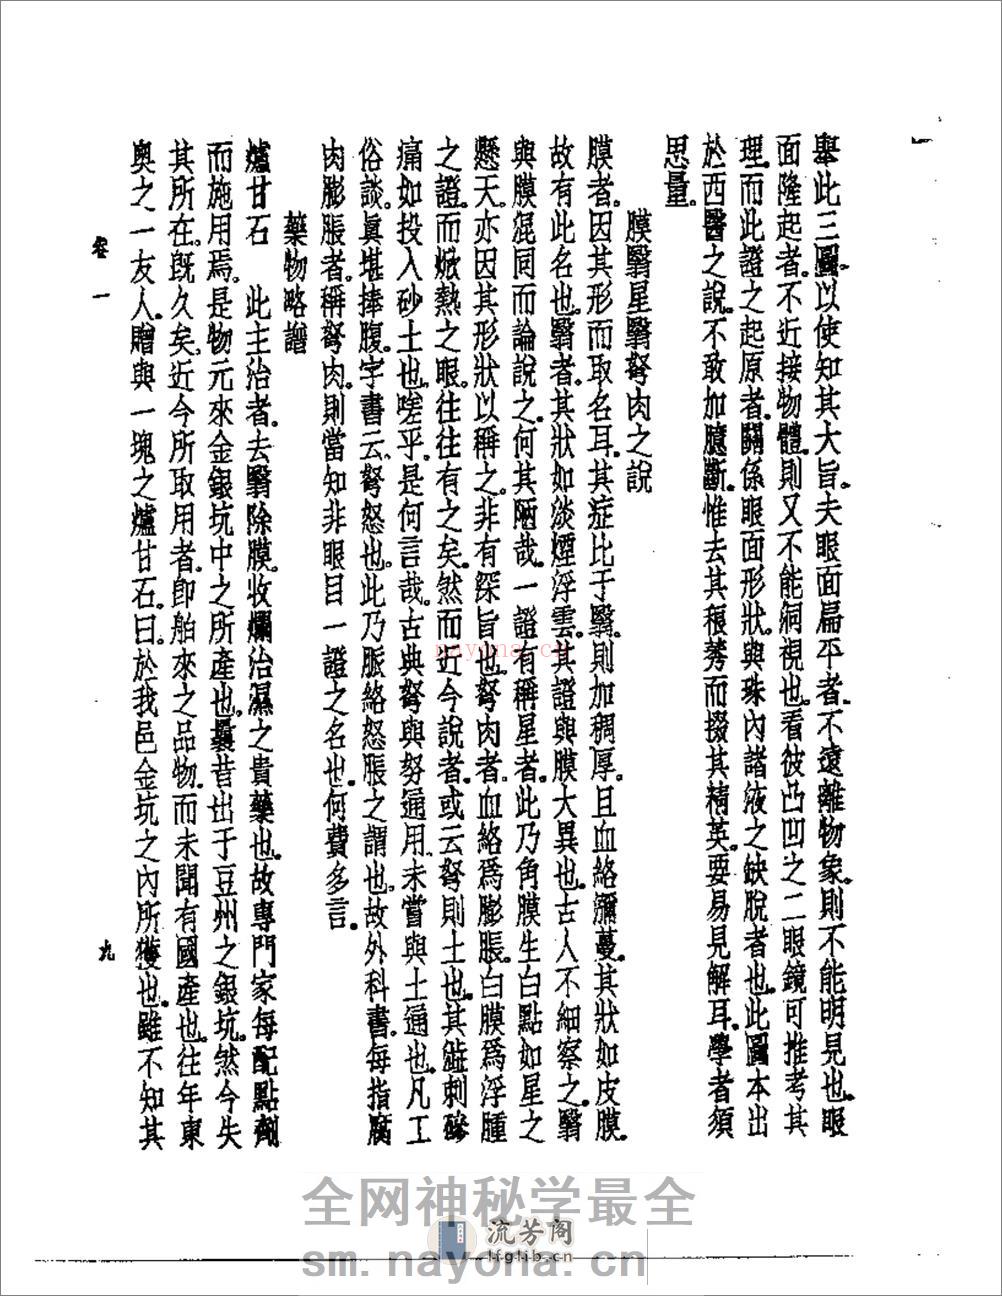 舉此三圖以使知其大旨夫眼面扁平者不遠離物象則不能明見也眼
面隆起者不近接物體則又不能洞視也看彼凸凹之二眼鏡可推考其
理而此證之起原者關係眼面形狀與珠內諸液之缺脫者也此圖本出
於西醫之說不敢加臆斷惟去其稂莠而掇其精英要易見解耳學者須
思量
膜翳星翳胬肉之說
膜者因其形而取名耳其症比于翳則加稠厚且血絡彌蔓其狀如皮膜
故有此名也翳者其狀如淡煙浮雲其證與膜大異也古人不細察之翳
與膜混同而論說之何其陋哉一證有稱星者此乃角膜生白點如星之
懸天亦因其形狀以稱之非有深旨也胬肉者血絡爲膨脹白膜爲浮腫
之證而焮熱之眼往往有之矣然而近今說者或云胬則土也其刺
痛如投入砂土也嗟乎是何言哉古典胬與努通用未嘗與土通也凡工
俗談眞堪捧腹字書云胬怒也此乃脈絡怒脹之謂也故外科書每指腐
肉膨脹者稱胬肉則當知非眼目一證之名也何費多言
藥物略譜
爐甘石 此主治者去翳除膜收爛治濕之貴藥也故專門家每配點劑
而施用焉是物元來金銀坑中之所產也曩昔出于豆州之銀坑然今失
其所在既久矣近今所取用者卽舶來之品物而未聞有國產也往年東
奧之一友人贈與一塊之爐甘石曰於我邑金坑之內所獲也雖不知其
卷一
九
nayona.cn
全网神秘学最全
流芳阁
lfglib.cn
sm.nayona.cn